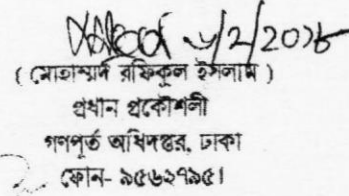 ৮/2/20১৮
( মোহাম্মদ রফিকুল ইসলাম )
প্রধান প্রকৌশলী
গণপূর্ত অধিদপ্তর, ঢাকা
ফোন- ৯৫৬২৭৯৫।